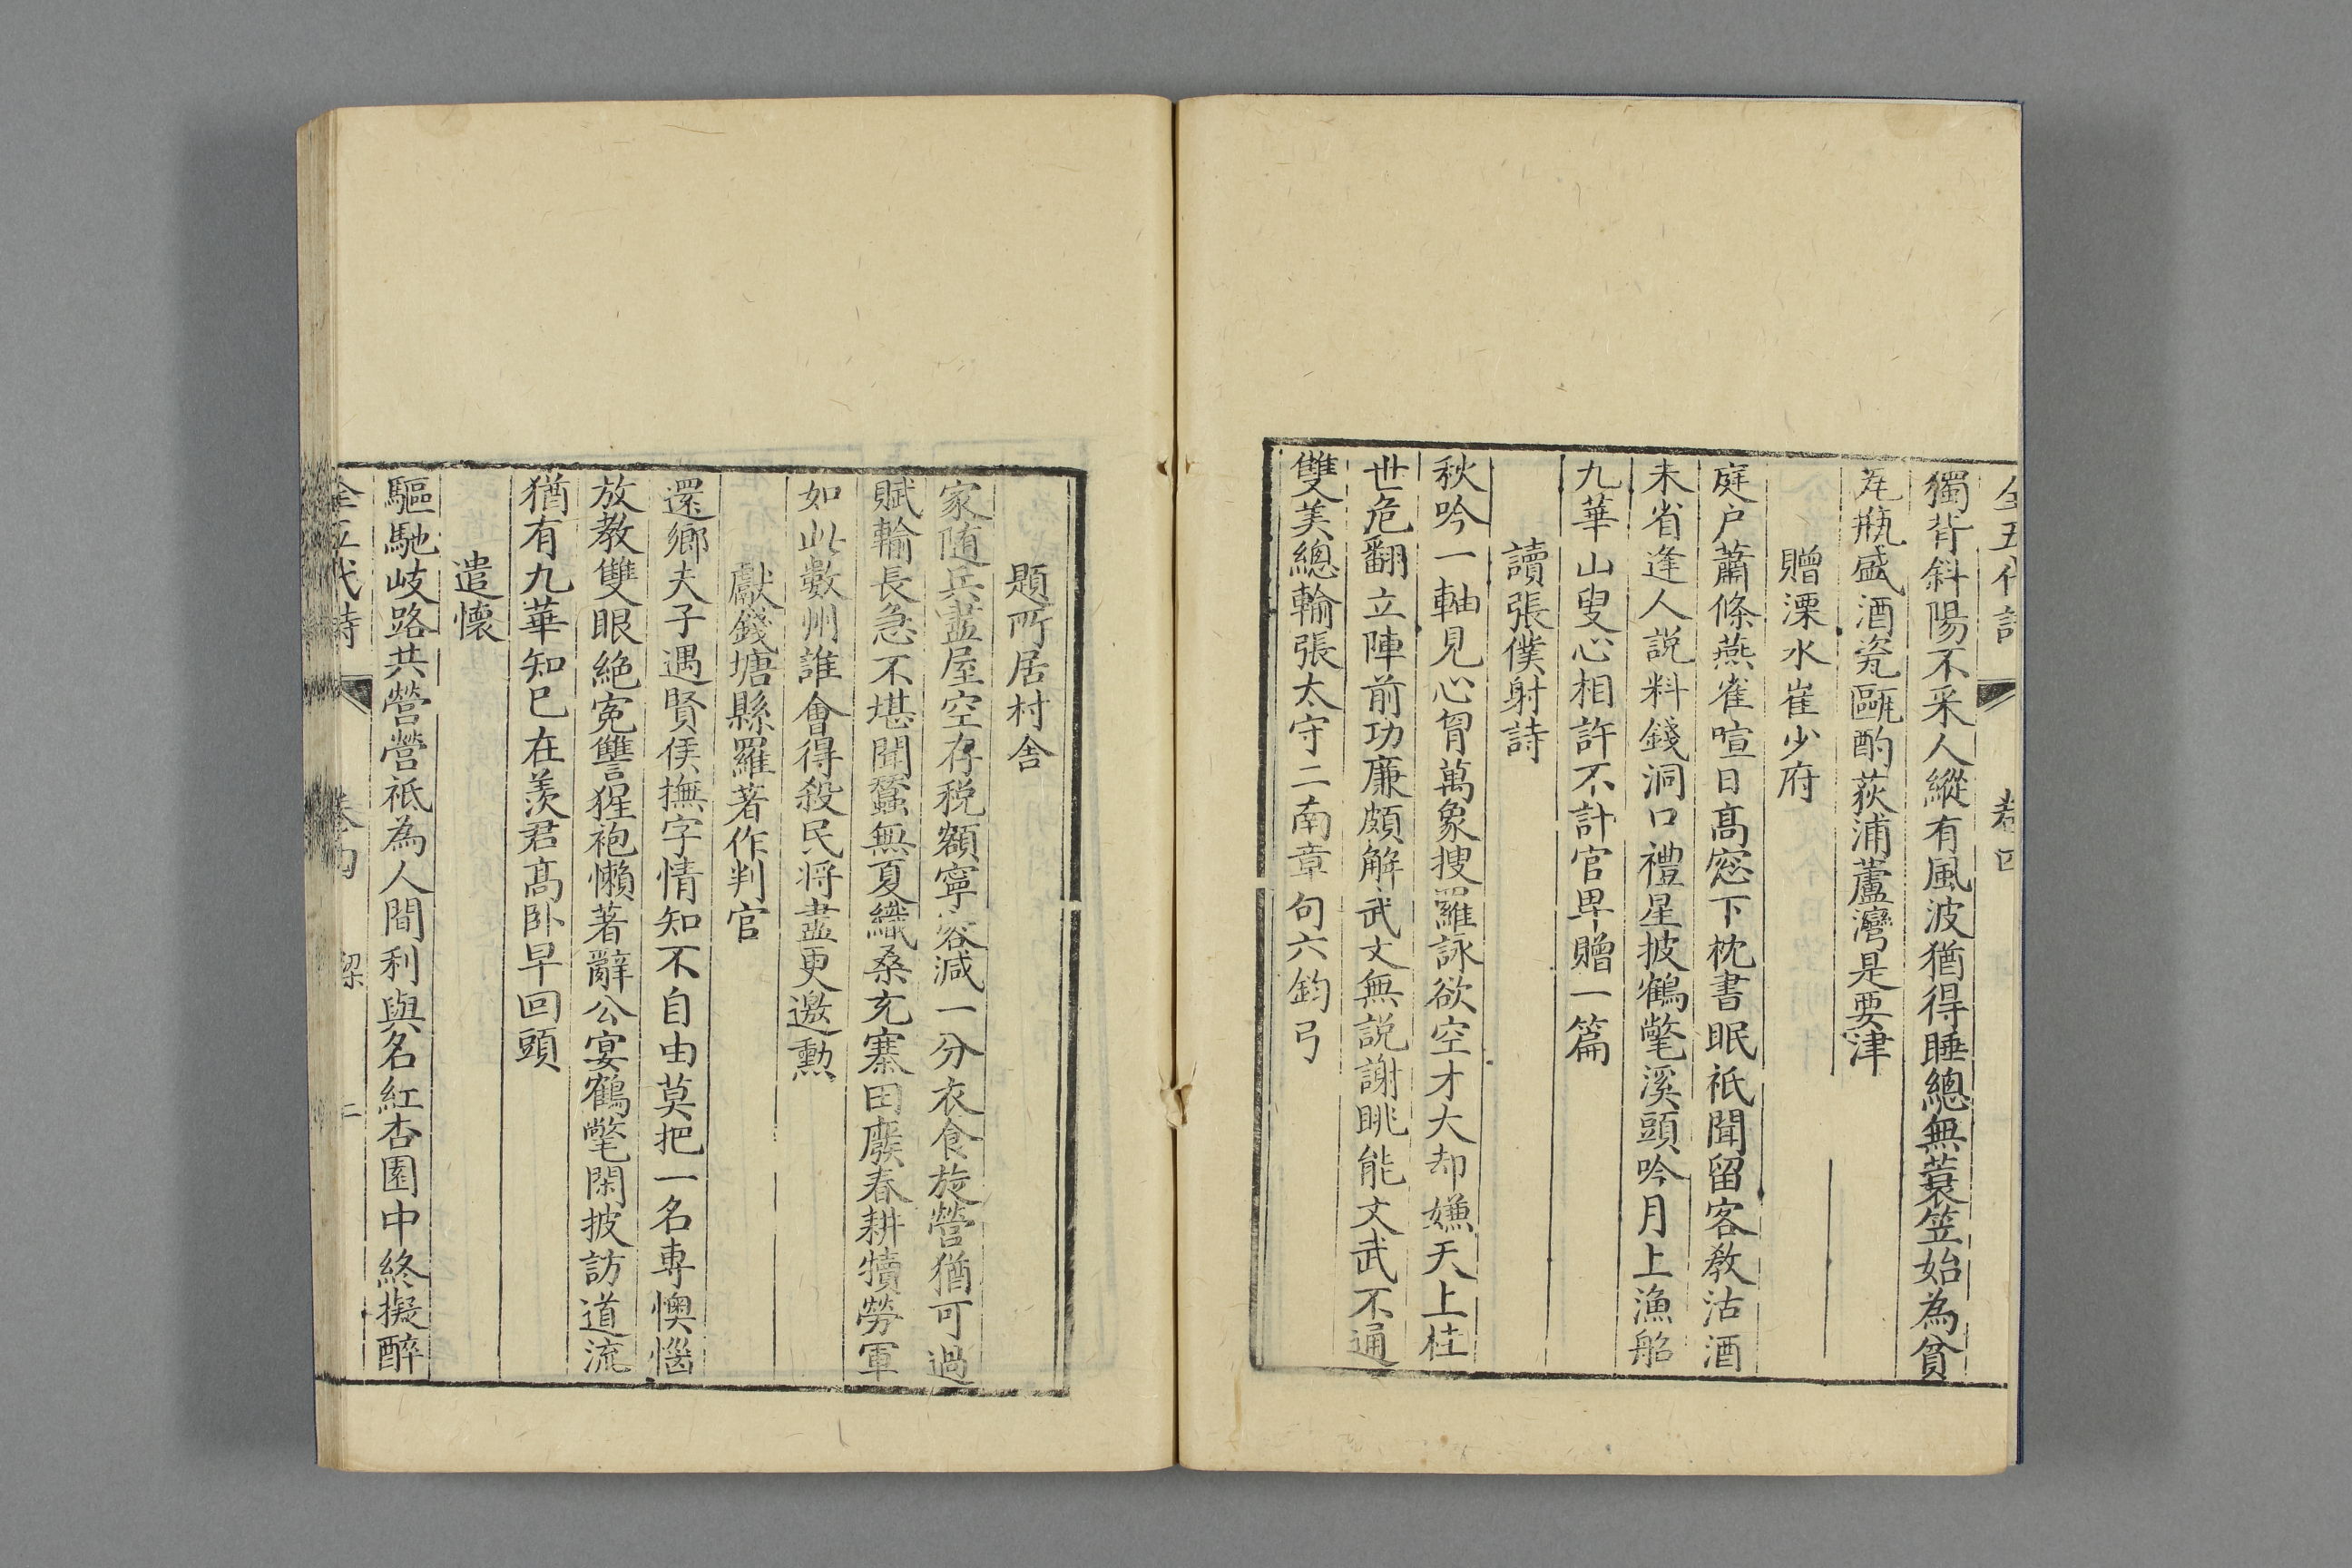 全五代詩
卷四
獨背斜陽不采人縱有風波猶得睡總無蓑笠始為貧
瓦瓶盛酒瓷甌酌荻浦蘆灣是要津
贈溧水崔少府
庭户蕭條燕雀喧日髙窓下枕書眠秖聞留客敎沽酒
未省逢人説料錢洞口禮星披鶴氅溪頭吟月上漁船
九華山叟心相許不計官卑贈一篇
讀張僕射詩
秋吟一軸見心胷萬象搜羅詠欲空才大却嫌天上桂
世危翻立陣前功廉頗解武文無説謝眺能文武不通
雙美總輸張太守二南章句六鈞弓
題所居村舍
家随兵盡屋空存税額寧容減一分衣食旋營猶可過
賦輸長急不堪聞蠶無夏織桑充寨田廢春耕犢勞軍
如此數州誰會得殺民将盡更邀勲
獻錢塘縣羅著作判官
還鄉夫子遇賢侯撫字情知不自由莫把一名專懊惱
放教雙眼絶寃讐猩袍懶著辭公宴鶴氅閑披訪道流
猶有九華知已在羨君髙卧早回頭
遣懷
驅馳岐路共營營祇為人間利與名紅杏園中終擬醉
全五代詩
卷四
梁
二